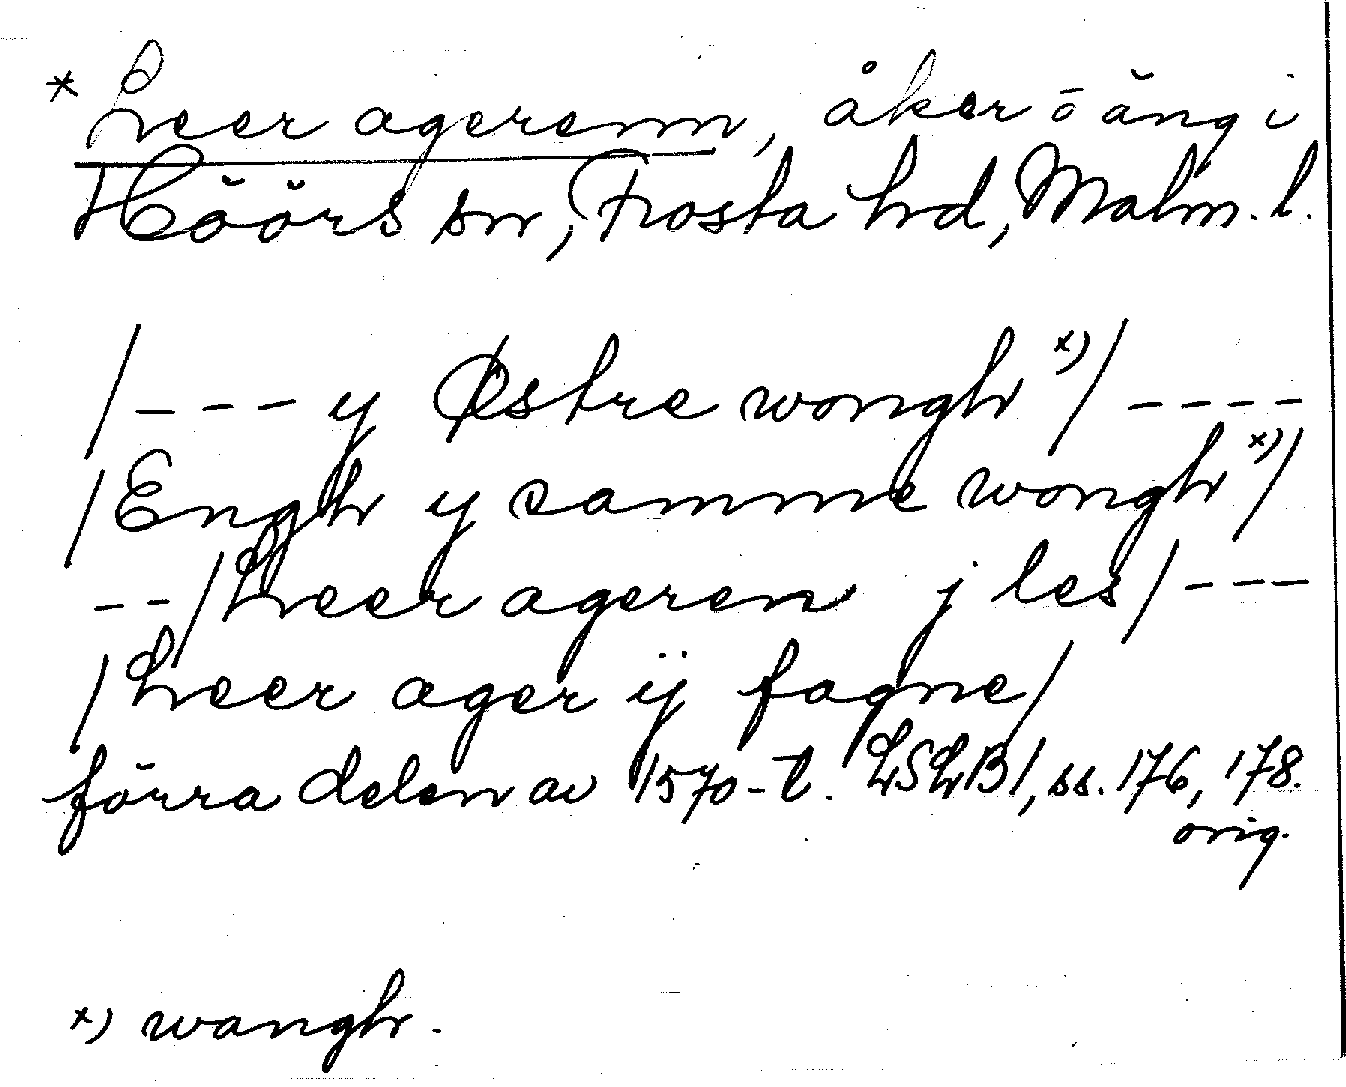 * Leer agerenn, åker o äng i
Höörs sn, Frosta hd, Malm. l.
/ - - - y Østre wongh x) / - - - -
/ Engh y samme wongh x) /
- - / Leer ageren j les / - - -
/ Leer ager ÿ fagne /
förra delen av 1570-t. LSLB 1, ss. 176, 178.
orig.
x) wangh.